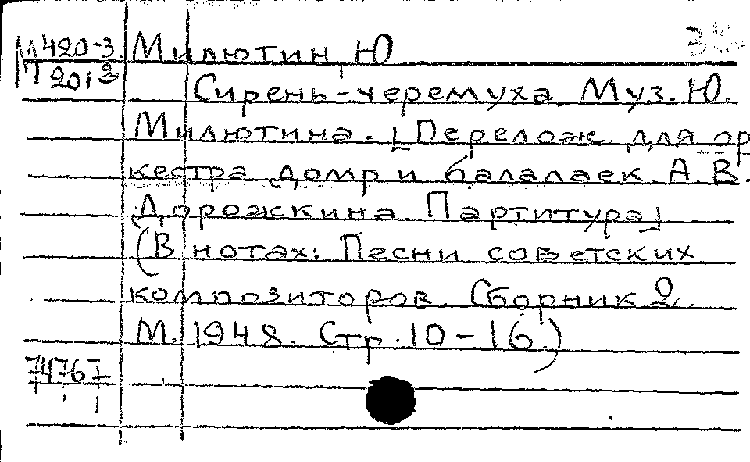 М 420-3 Милютин, Ю
2013
Сирень-черемуха Муз. Ю.
Милютина. [Перелож для ор
кестра домр и балалаек А. В.
Дорожкина Партитура]
(В нотах: Песни советских
композиторов. Сборник 2.
М. 1948. Стр. 10-16.)
74767